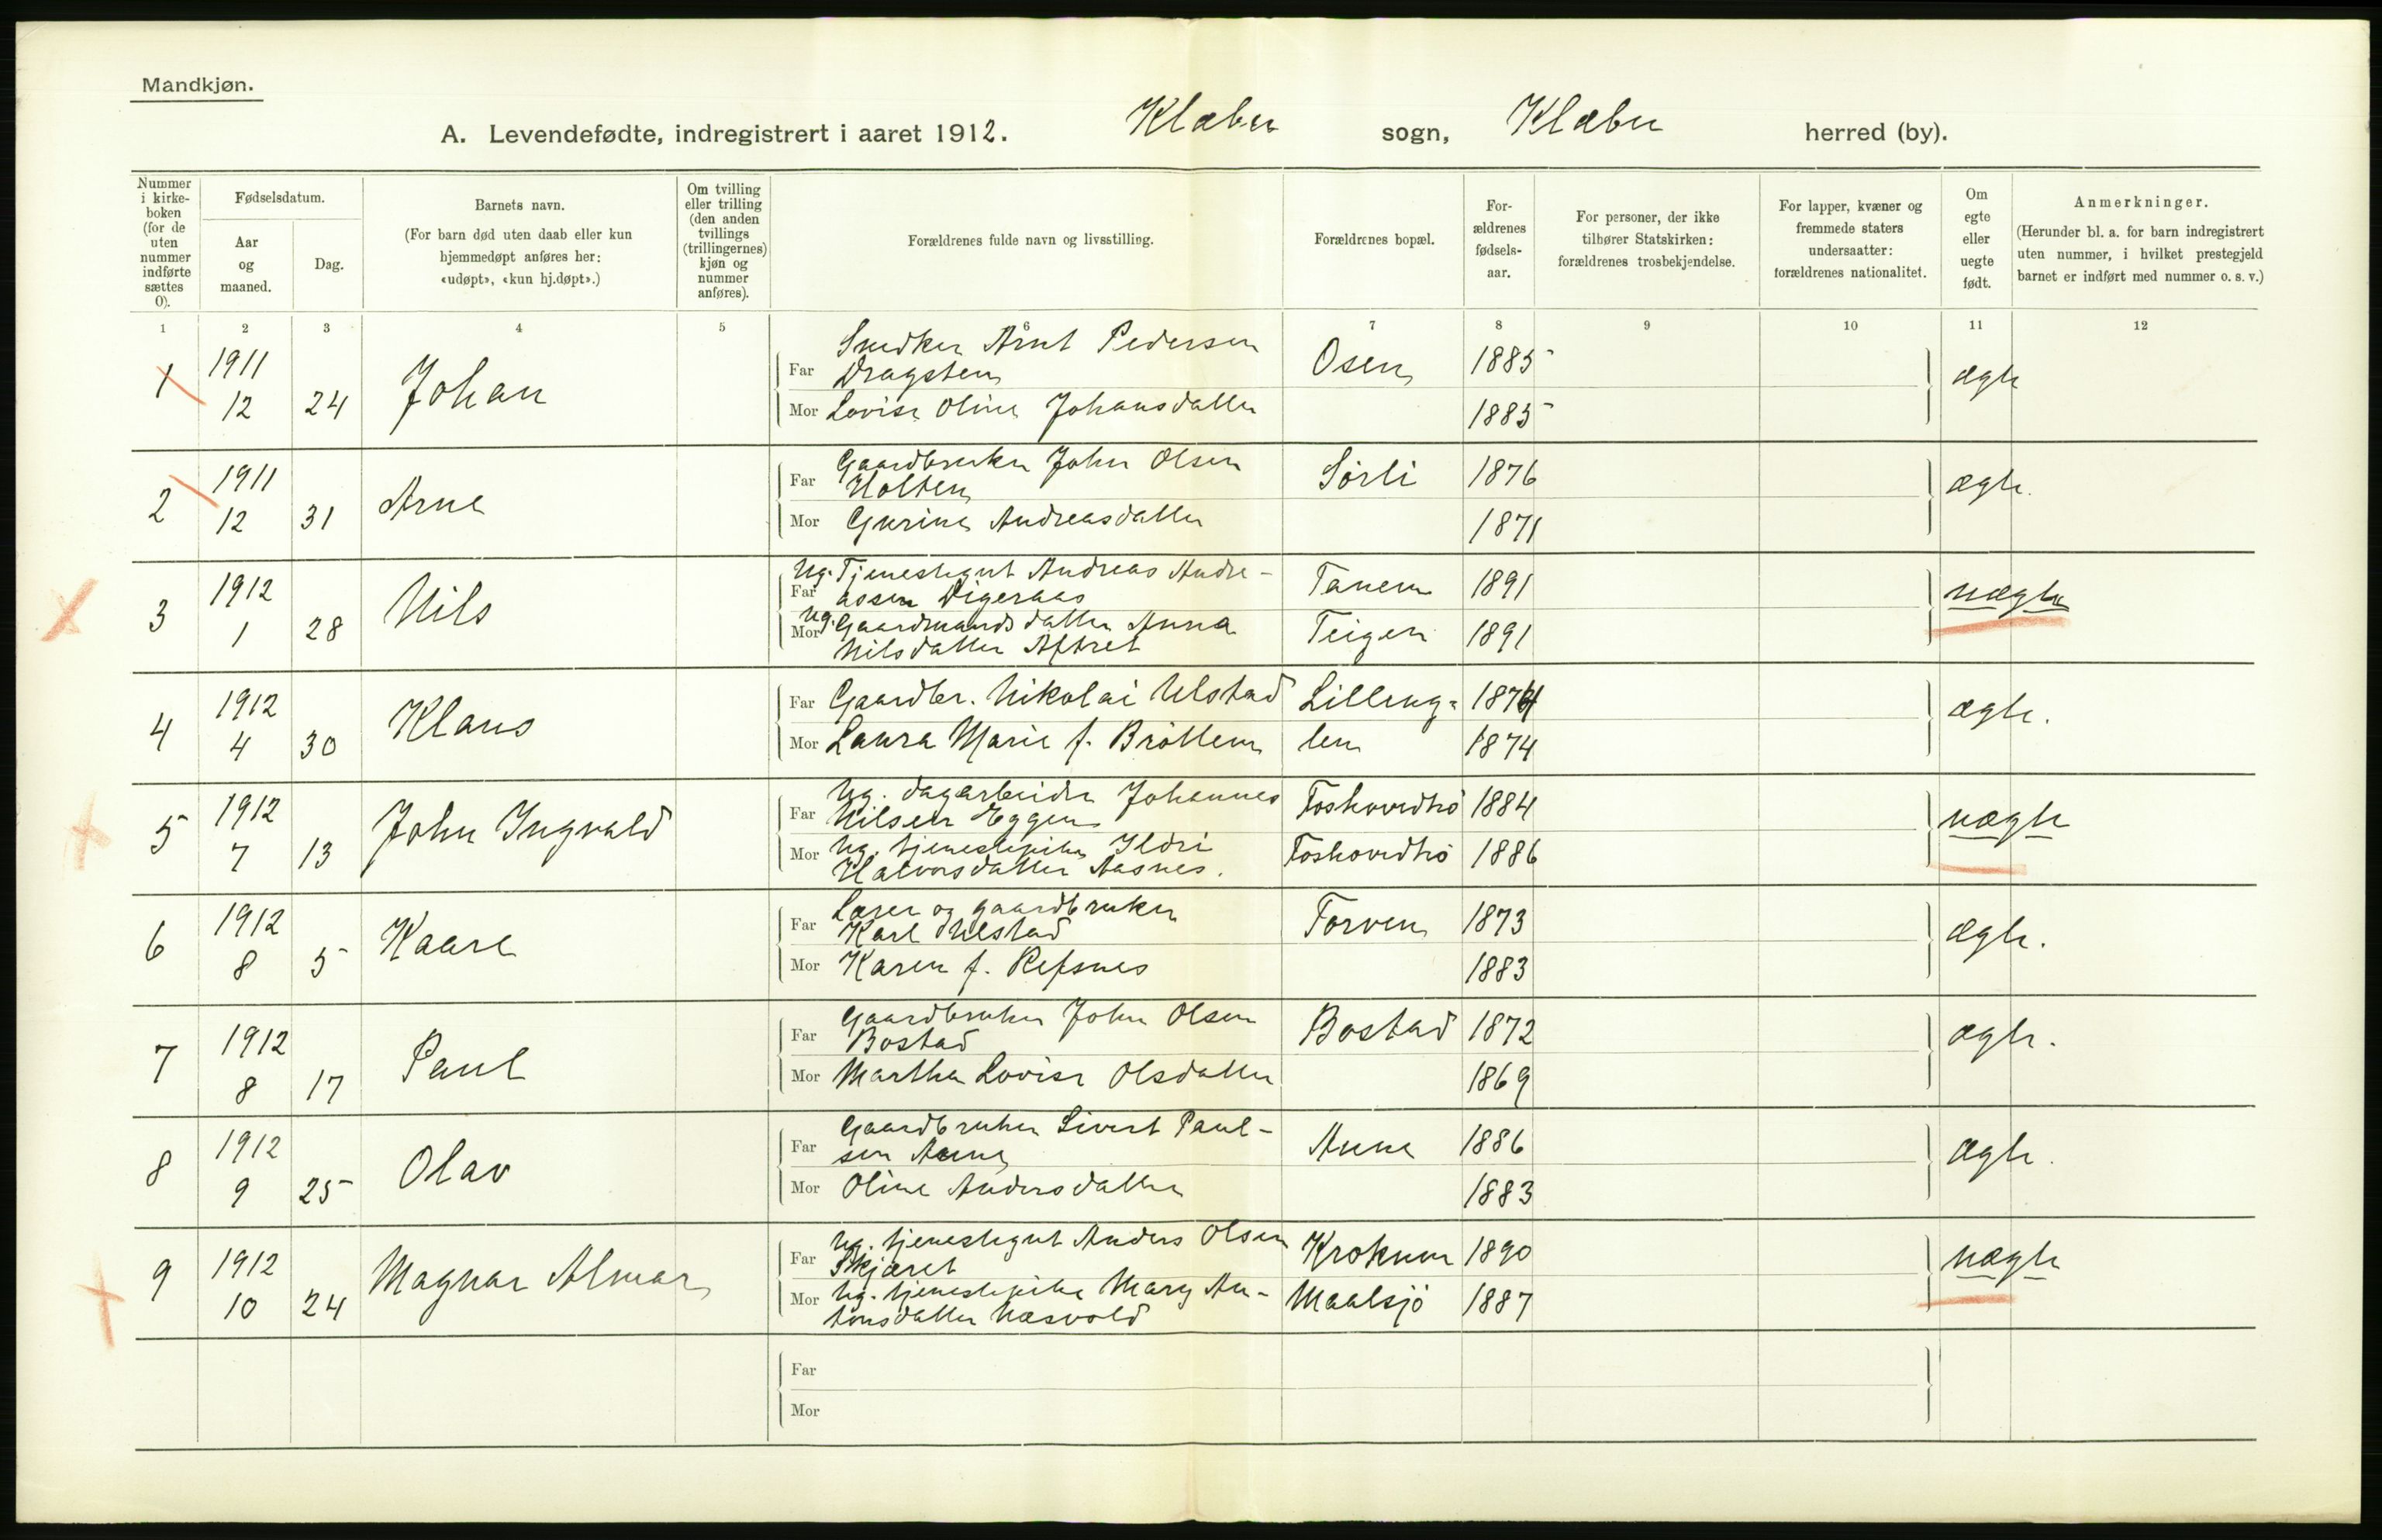 Mandkjøn.
A. Levendefødte, indregistrert i aaret 1912. Klæbu sogn, Klæbu herred (by).
Nummer i kirke-boken (for de uten nummer indførte sættes 0).
Fødselsdatum.
Aar og maaned.
Dag.
Barnets navn.
(For barn død uten daab eller kun hjemmedøpt anføres her: «udøpt», «kun hj.døpt».)
Om tvilling eller trilling (den anden tvillings (trillingernes) kjøn og nummer anføres).
Forældrenes fulde navn og livsstilling.
Forældrenes bopæl.
For-ældrenes fødsels-aar.
For personer, der ikke tilhører Statskirken: forældrenes trosbekjendelse.
For lapper, kvæner og fremmede staters undersaatter: forældrenes nationalitet.
Om egte eller uegte født.
Anmerkninger.
(Herunder bl. a. for barn indregistrert uten nummer, i hvilket prestegjeld barnet er indført med nummer o. s. v.)
1 2 3 4 5 6 7 8 9 10 11 12
1 1911 12 24 Johan
Far Snedker Arnt Pedersen Dragsten Osen 1885 ægte
Mor Lovise Oline Johansdatter 1885
2 1911 12 31 Arne
Far Gaardbruker John Olsen Holten Sörli 1876 ægte.
Mor Gurine Andreasdatter 1871
3 1912 1 28 Nils
Far Ug. Tjenestegut Andreas Andre-assen Digeraas Tanem 1891 uægte
Mor Ug. Gaardmandsdatter Anna Nilsdatter Aftret Teigen 1891
4 1912 4 30 Klaus
Far Gaardbr. Nikolai Ulstad Lilleug- 1874 ægte.
Mor Laura Marie f. Bröttem len 1874
5 1912 7 13 John Ingvald
Far Ug. dagarbeider Johannes Nilsen Eggen Foshovdtrö 1884 uægte
Mor Ug. tjenestepike Ildri Halvorsdatter Aasnes. Foshovdtrö 1886
6 1912 8 5 Kaare
Far Lærer og gaardbruker Karl Ulstad Torven 1873 ægte.
Mor Karen f. Refsnes 1883
7 1912 8 17 Paul
Far Gaardbruker John Olsen Bostad Bostad 1872 ægte.
Mor Martha Lovise Olsdatter 1869
8 1912 9 25 Olav
Far Gaardbruker Sivert Paul-sen Aune Aune 1886 ægte.
Mor Oline Andersdatter 1883
9 1912 10 24 Magnar Almar
Far Ug. tjenestegut Anders Olsen Skjæret Krokum 1890 uægte
Mor Ug. tjenestepike Mary An-tonsdatter Næsvold Maalsjö 1887
Far
Mor